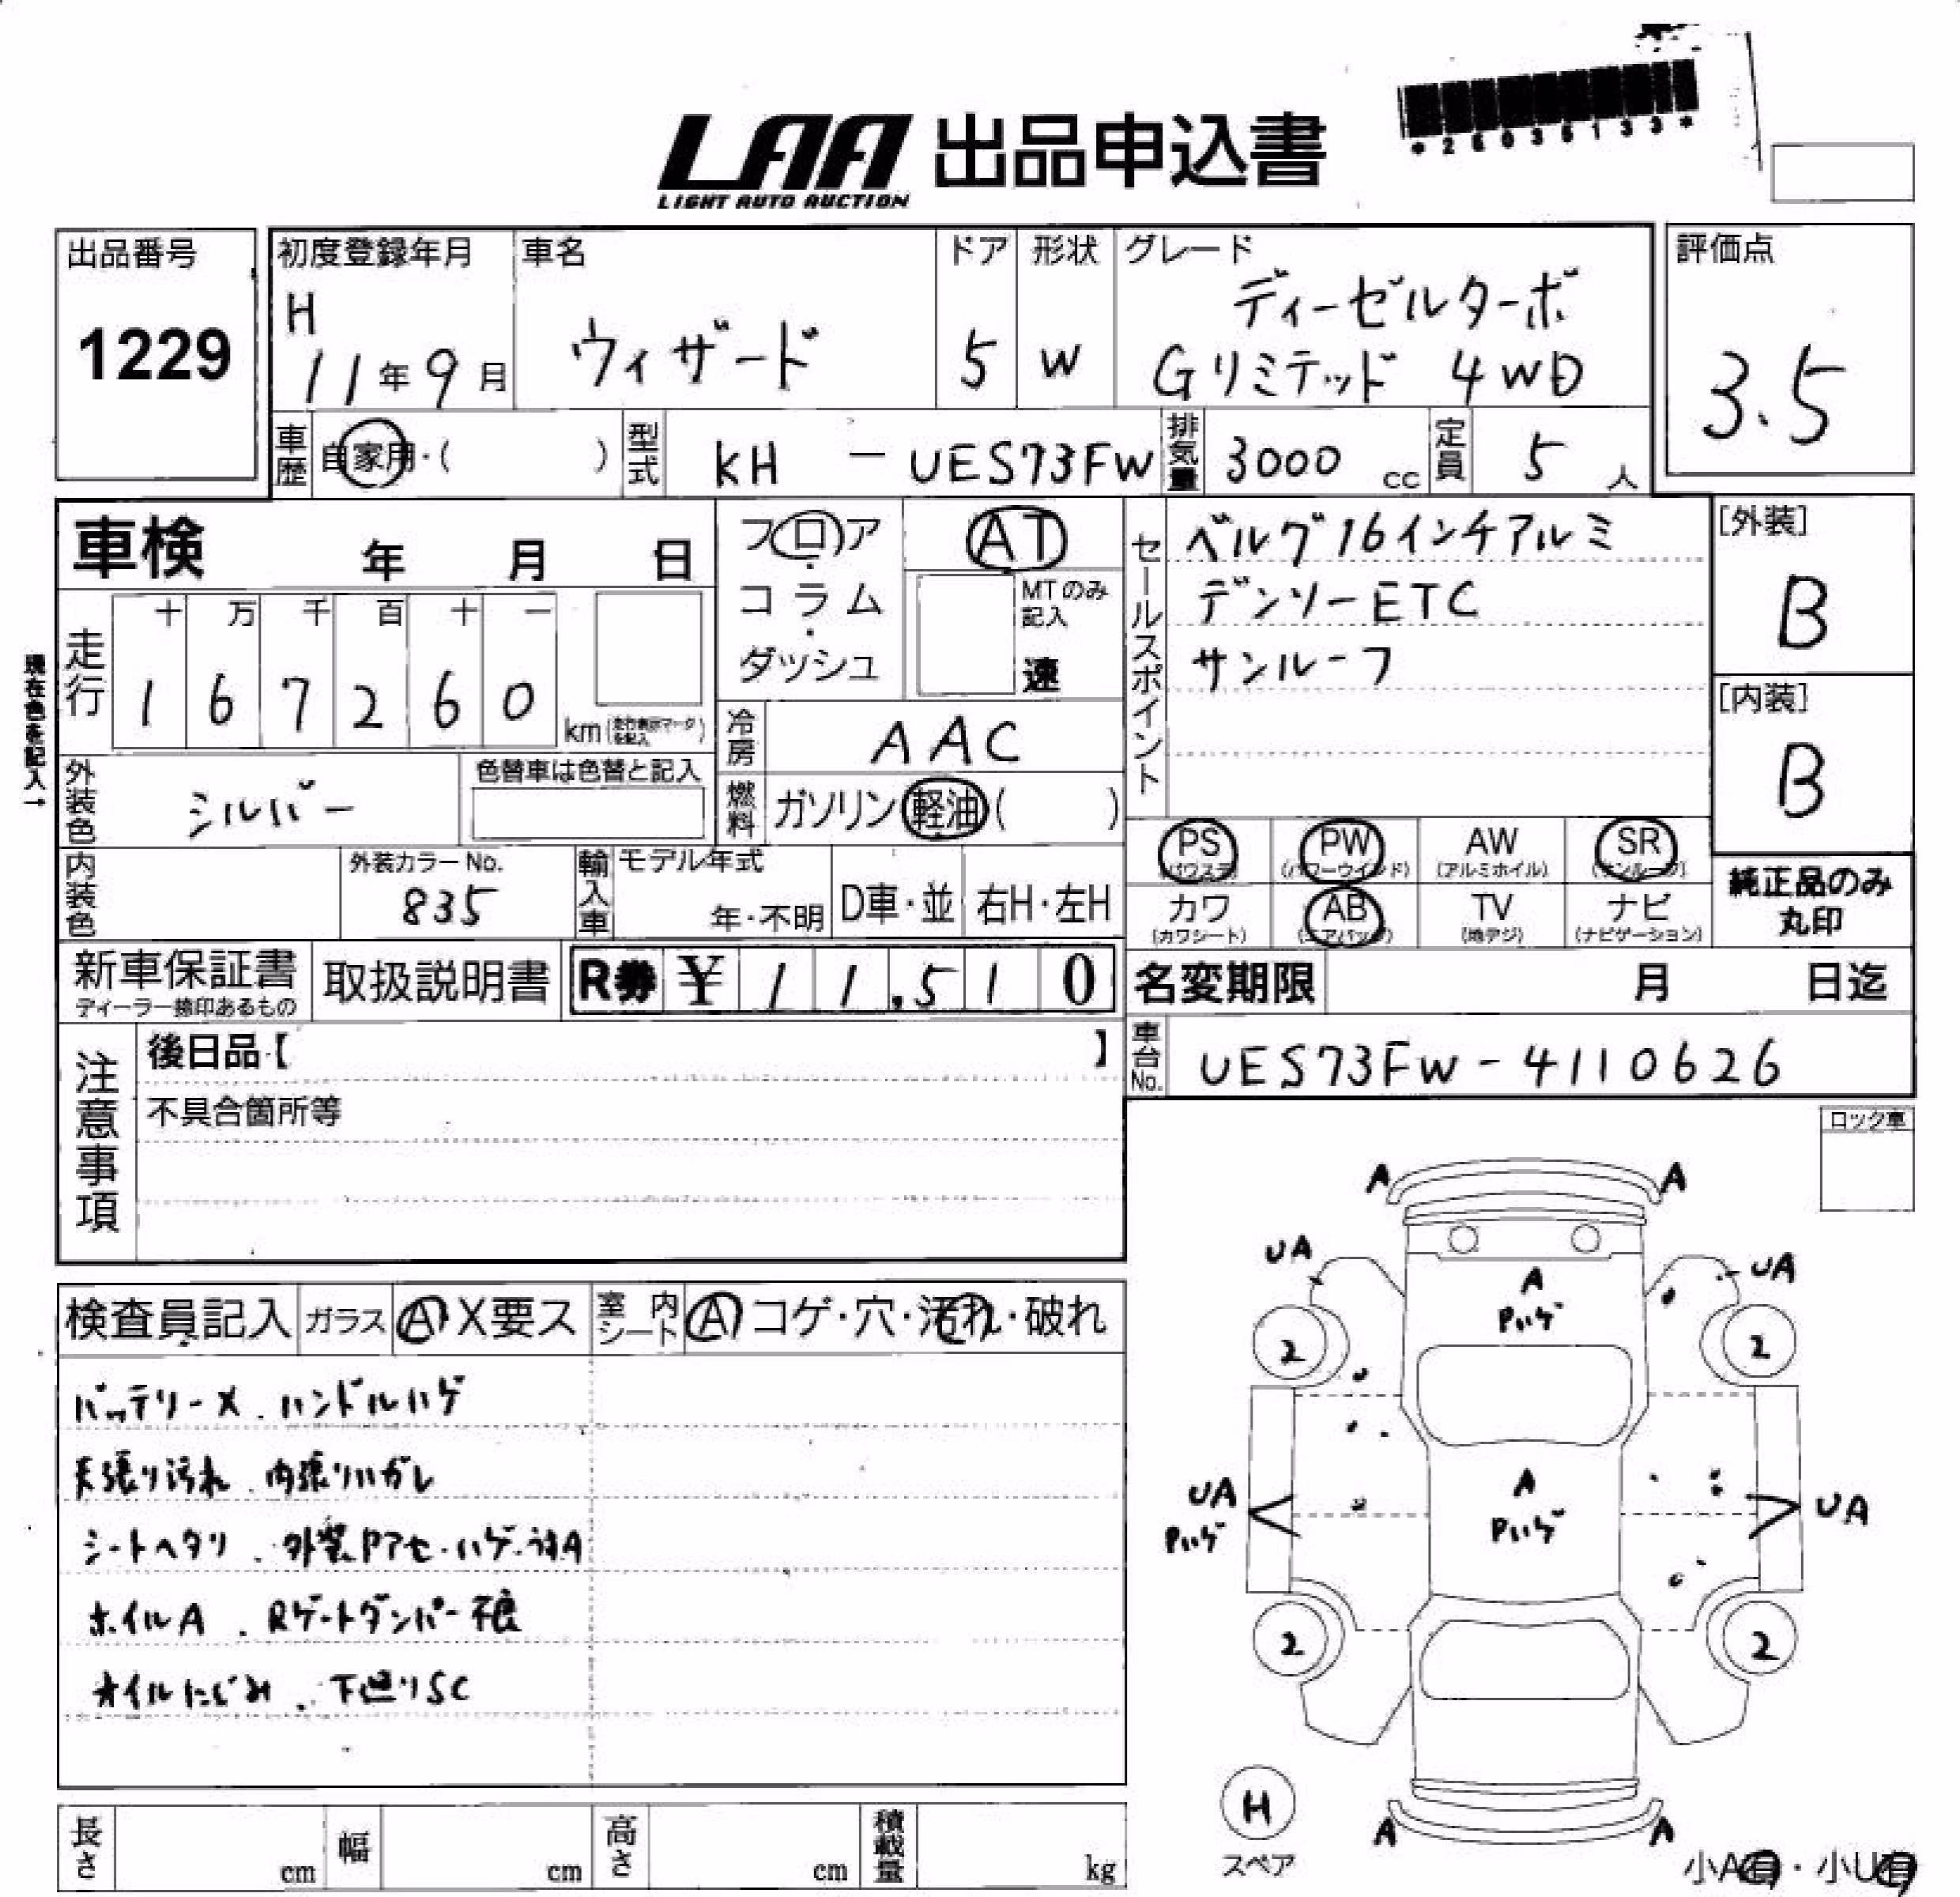 LAA 出品申込書
LIGHT AUTO AUCTION
出品番号
1229
初度登録年月
H
11年9月
車名
ウィザード
ドア
5
形状
W
グレード
ディーゼルターボ
Gリミテッド 4WD
評価点
3.5
車歴
自家用・( )
型式
KH - UES73FW
排気量
3000 cc
定員
5 人
車検 年 月 日
現在色を記入→
走行
十 万 千 百 十 一
1 6 7 2 6 0
km
フロア
・
コラム
・
ダッシュ
AT
MTのみ
記入
速
冷房
AAC
燃料
ガソリン 軽油 ( )
外装色
シルバー
色替車は色替と記入
内装色
外装カラーNo.
835
輸入車
モデル年式
年・不明
D車・並
右H・左H
セールスポイント
ベルグ16インチアルミ
デンソーETC
サンルーフ
[外装]
B
[内装]
B
PS
(パワステ)
PW
(パワーウインド)
AW
(アルミホイル)
SR
(サンルーフ)
カワ
(カワシート)
AB
(エアバッグ)
TV
(地デジ)
ナビ
(ナビゲーション)
純正品のみ
丸印
新車保証書
ディーラー捺印あるもの
取扱説明書
R券 ¥ 11,510
名変期限 月 日迄
車台No.
UES73FW-4110626
注意事項
後日品【 】
不具合箇所等
ロック車
検査員記入
ガラス
A X要ス
室内
シート
A コゲ・穴・汚れ・破れ
バッテリーX . ハンドルハゲ
天張り汚れ . 内張りハガレ
シートヘタリ . 外装Pアセ・ハゲ
ホイルA . Rゲートダンパー不良
オイルにじみ . 下廻りSC
A
A
UA
UA
A
Pハゲ
2
2
UA
Pハゲ
A
Pハゲ
UA
2
2
H
スペア
A
A
小A有・小U有
長さ cm
幅 cm
高さ cm
積載量 kg